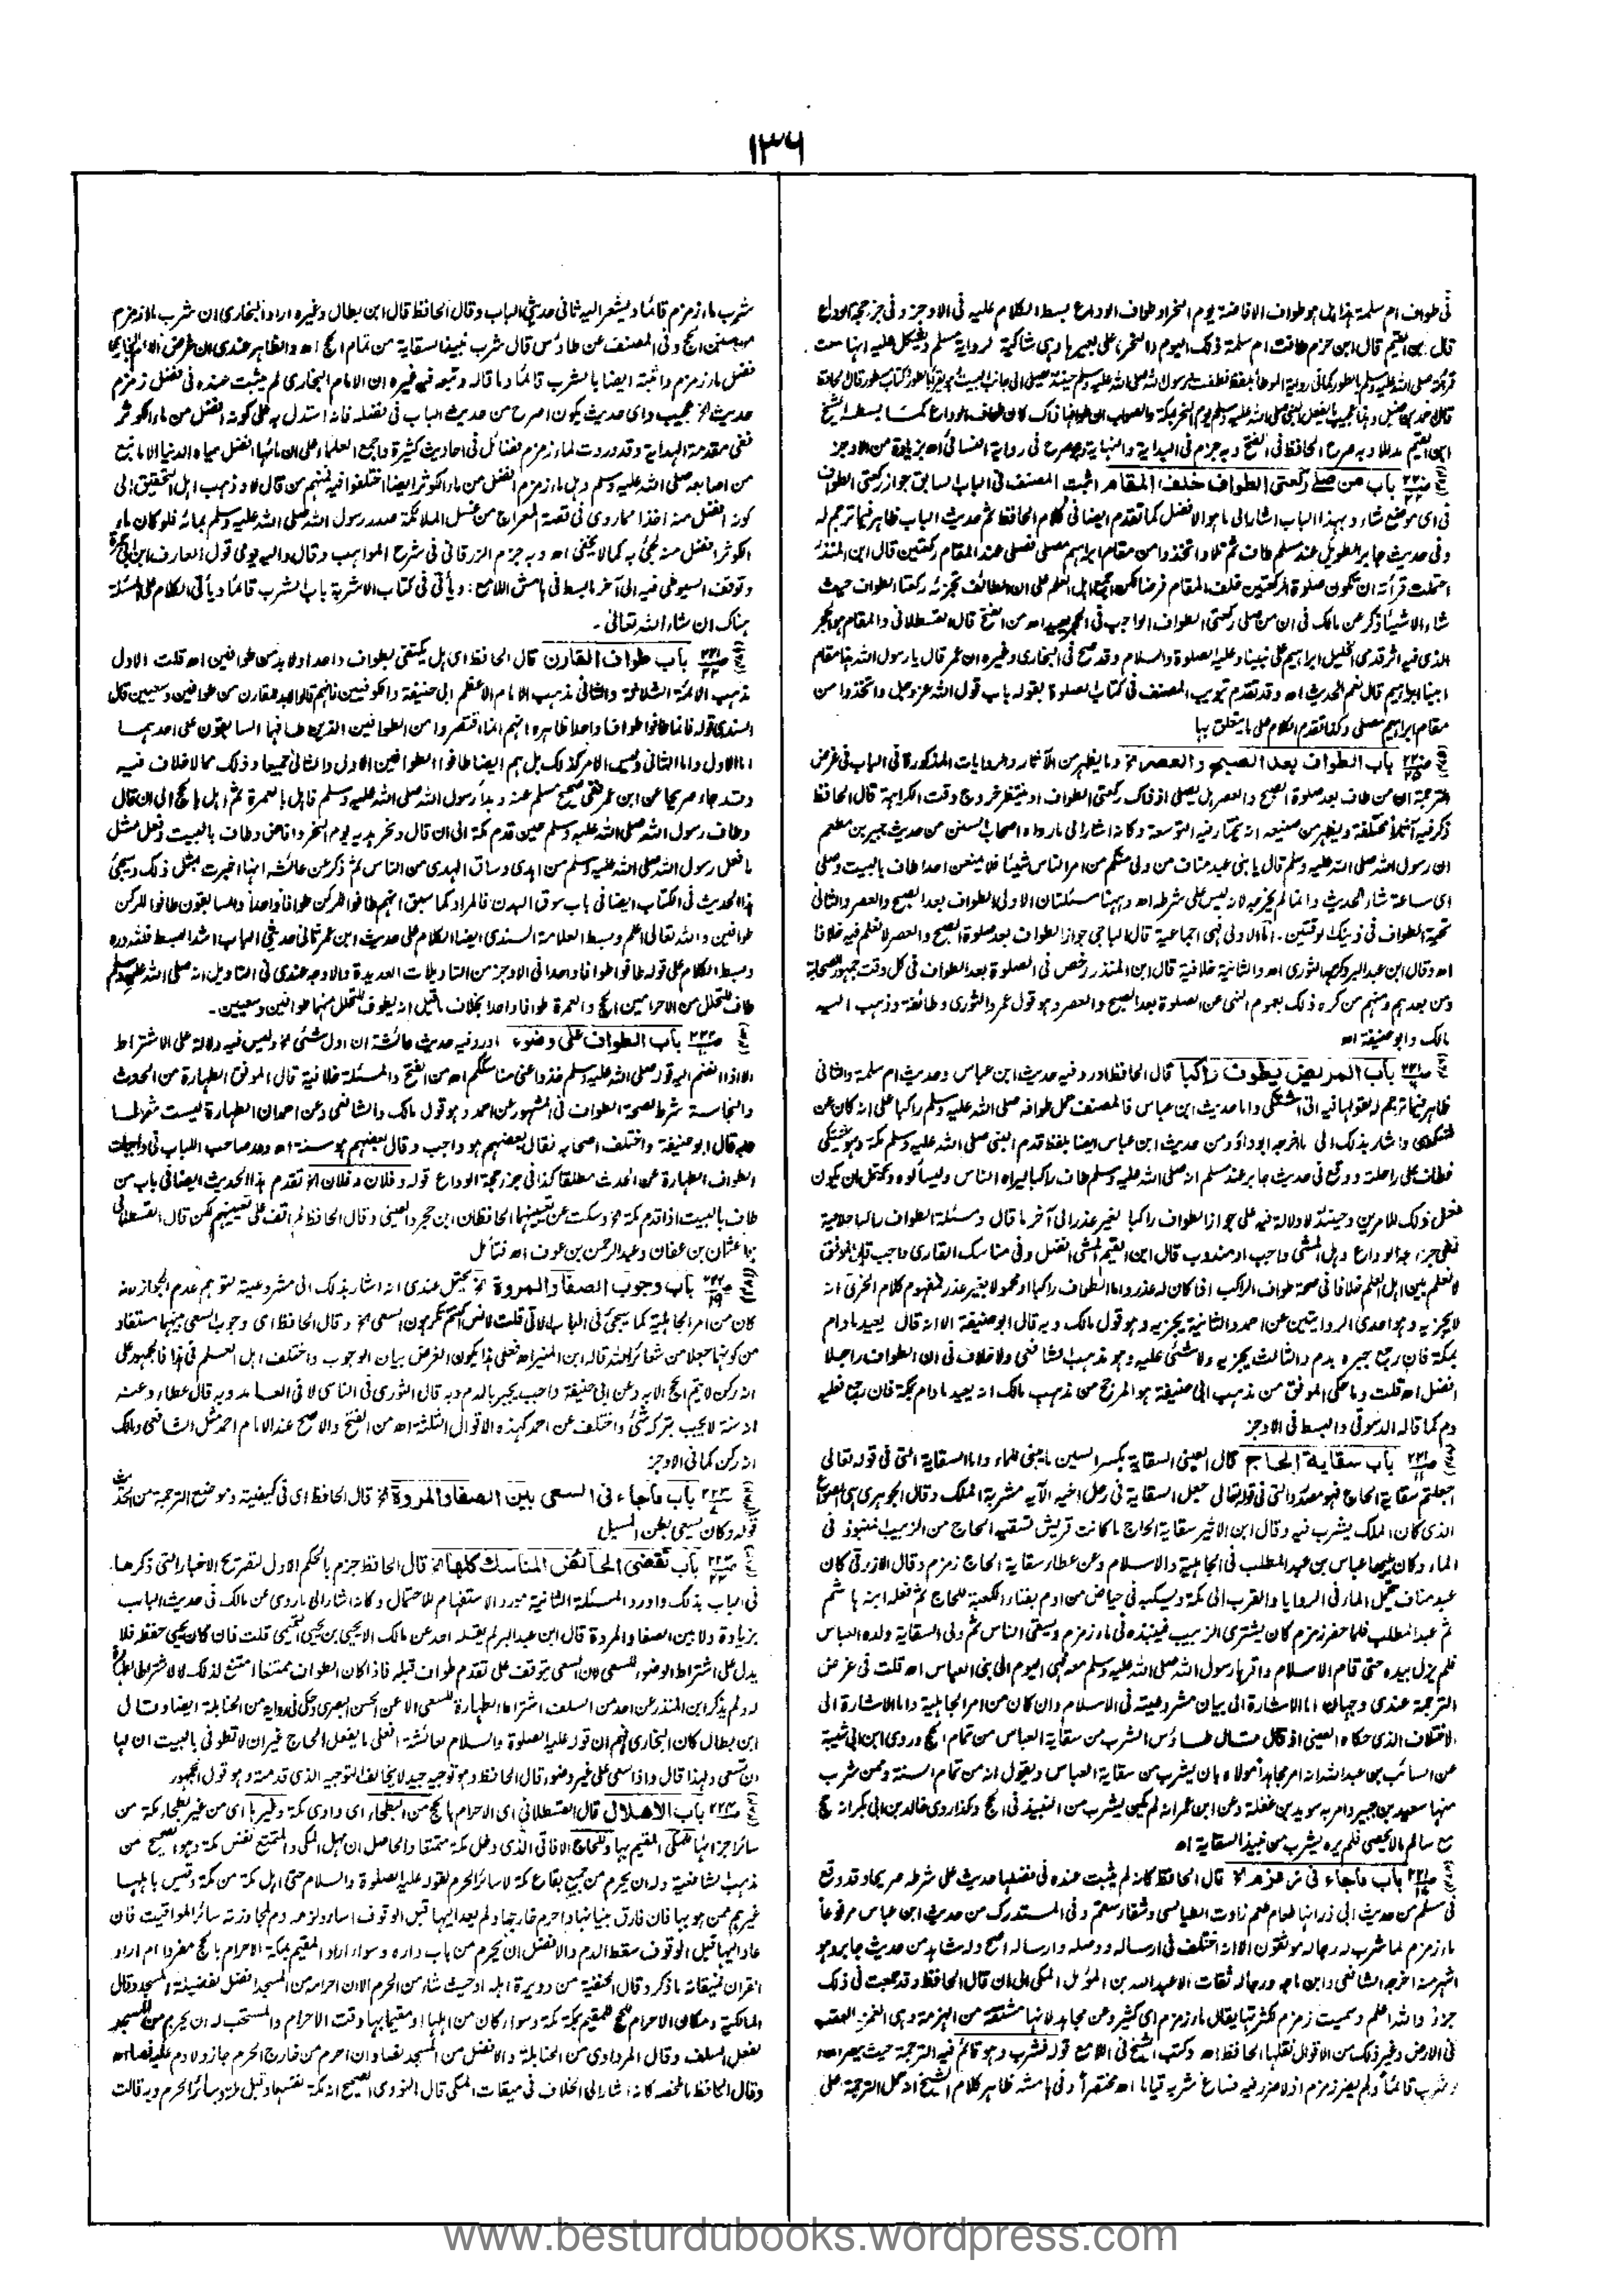 ۱۳۶
فى طواف ام سلمة هذا هل هو طواف الافاضة يوم النحر او طواف الوداع بسط الكلام عليه فى الاوجز و فى جزء حجة الوداع
قال ابن القيم قال ابن حزم طافت ام سلمة ذلك اليوم
ابن القيم مدللا و به صرح الحافظ فى الفتح و به جزم فى البداية والنهاية وهو مصرح فى رواية النسائى اه بزيادة من الاوجز
باب من صلى ركعتى الطواف خلف المقام اثبت المصنف فى الباب السابق جواز ركعتى الطواف
فى اى موضع شاء و بهذا الباب اشار الى ما هو الافضل كما تقدم ايضا فى كلام الحافظ ثم حديث الباب ظاهر فيما ترجم له
و فى حديث جابر الطويل عند مسلم طاف ثم تلا واتخذوا من مقام ابراهيم مصلى فصلى عند المقام ركعتين قال ابن المنذر
احتملت قرأته ان تكون صلوة الركعتين خلف المقام فرضا لكن اجمع اهل العلم على ان الطائف تجزئه ركعتا الطواف حيث
شاء الا شيئا ذكر عن مالك فى ان من صلى ركعتى الطواف الواجب فى الحجر يعيد اه من الفتح قال القسطلانى والمقام هو الحجر
الذى فيه اثر قدمى الخليل ابراهيم على نبينا وعليه الصلوة والسلام وقد صح فى البخارى وغيره ان عمر قال يا رسول الله هذا مقام
ابينا ابراهيم قال نعم الحديث اه وقد تقدم تبويب المصنف فى كتاب الصلوة بقوله باب قول الله عز وجل واتخذوا من
مقام ابراهيم مصلى وكذا تقدم الكلام على ما يتعلق بها
باب الطواف بعد الصبح والعصر الخ وما يظهر من الآثار والروايات المذكورة فى الباب فى غرض
الترجمة ان من طاف بعد صلوة الصبح والعصر هل يصلى اذ ذاك ركعتى الطواف او ينتظر خروج وقت الكراهة قال الحافظ
ذكر فيه آثارا مختلفة ويظهر من صنيعه انه يختار فيه التوسعة وكانه اشار الى ما رواه اصحاب السنن من حديث جبير بن مطعم
ان رسول الله صلى الله عليه وسلم قال يا بنى عبد مناف من ولى منكم من امر الناس شيئا فلا يمنعن احدا طاف بالبيت وصلى
اى ساعة شاء الحديث وانما لم يخرجه لانه ليس على شرطه اه وههنا مسئلتان الاولى الطواف بعد الصبح والعصر والثانى
تحية الطواف فى ذينك الوقتين. اما الاولى فهى اجماعية قال الباجى جواز الطواف بعد صلوة الصبح والعصر لا نعلم فيه خلافا
اه وقال ابن عبد البر وكرهه الثورى اه والثانية خلافية قال ابن المنذر رخص فى الصلوة بعد الطواف فى كل وقت جمهور الصحابة
ومن بعدهم ومنهم من كره ذلك بعموم النهى عن الصلوة بعد الصبح والعصر وهو قول عمر والثورى وطائفة وذهب اليه
مالك وابو حنيفة اه
باب المريض يطوف راكبا قال الحافظ اورد فيه حديث ابن عباس وحديث ام سلمة والثانى
ظاهر فيما ترجم له لقولها فيه انى اشتكى واما حديث ابن عباس فالمصنف حمل طوافه صلى الله عليه وسلم راكبا على انه كان عن
شكوى واشار بذلك الى ما اخرجه ابو داؤد من حديث ابن عباس ايضا بلفظ قدم النبى صلى الله عليه وسلم مكة وهو يشتكى
فطاف على راحلته ووقع فى حديث جابر عند مسلم انه صلى الله عليه وسلم طاف راكبا ليراه الناس وليسألوه ويحتمل ان يكون
فعل ذلك للامرين وحينئذ لا دلالة فيه على جواز الطواف راكبا لغير عذر الى آخر ما قال ومسئلة الطواف راكبا خلافية
ففى جزء حجة الوداع وهل المشى واجب او مندوب قال ابن القيم المشى افضل وفى مناسك القارى واجب قال الموفق
لا نعلم بين اهل العلم خلافا فى صحة طواف الراكب اذا كان له عذر واما الطواف راكبا او محمولا لغير عذر فمفهوم كلام الخرقى انه
لا يجزيه وهو احدى الروايتين عن احمد والثانية يجزيه وهو قول مالك وبه قال ابو حنيفة الا انه قال يعيد مادام
بمكة فان رجع جبره بدم والثالث يجزيه ولا شئ عليه وهو مذهب الشافعى ولا خلاف فى ان الطواف راجلا
افضل اه قلت وما حكى الموفق من مذهب ابى حنيفة هو المرجح من مذهب مالك انه يعيد مادام بمكة فان رجع فعليه
دم كما قاله الدسوقى والبسط فى الاوجز
باب سقاية الحاج قال العينى السقاية بكسر السين ما يبنى للماء واما السقاية التى فى قوله تعالى
اجعلتم سقاية الحاج فهو مصدر والتى فى قوله تعالى جعل السقاية فى رحل اخيه الآيه مشربة الملك وقال الجوهرى هى الصواع
الذى كان الملك يشرب فيه وقال ابن الاثير سقاية الحاج ما كانت قريش تسقيه الحاج من الزبيب المنبوذ فى
الماء وكان يليها عباس بن عبد المطلب فى الجاهلية والاسلام وعن عطاء سقاية الحاج زمزم وقال الازرقى كان
عبد مناف يحمل الماء فى الروايا والقرب الى مكة ويسكبه فى حياض من ادم بفناء الكعبة للحاج ثم فعله ابنه هاشم
ثم عبد المطلب فلما حفر زمزم كان يشترى الزبيب فينبذه فى ماء زمزم ويسقى الناس ثم ولى السقاية ولده العباس
فلم يزل بيده حتى قام الاسلام واقرها رسول الله صلى الله عليه وسلم معه فهى اليوم الى بنى العباس اه قلت فى غرض
الترجمة عندى وجهان اما الاشارة الى بيان مشروعيته فى الاسلام وان كان من امر الجاهلية واما الاشارة الى
الاختلاف الذى حكاه العينى اذ قال قال طاؤس الشرب من سقاية العباس من تمام الحج وروى ابن ابى شيبة
عن السائب بن عبد الله انه امر مجاهدا مولاه بان يشرب من سقاية العباس ويقول انه من تمام السنة وممن شرب
منها سعيد بن جبير وامر به سويد بن غفلة وعن ابن عمر انه لم يكن يشرب من النبيذ فى الحج وكذا روى خالد بن ابى بكر انه حج
مع سالم مالا يحصى فلم يره يشرب من نبيذ السقاية اه
باب ماجاء فى زمزم الخ قال الحافظ كانه لم يثبت عنده فى فضلها حديث على شرطه صريحا وقد وقع
فى مسلم من حديث ابى ذر انها طعام طعم زادت الطيالسى وشفاء سقم وفى المستدرك من حديث ابن عباس مرفوعا
ماء زمزم لما شرب له رجاله موثقون الا انه اختلف فى ارساله ووصله وارساله اصح وله شاهد من حديث جابر وهو
اشهر منه اخرجه الشافعى وابن ماجه ورجاله ثقات الا عبد الله بن المؤمل المكى الى ان قال الحافظ وقد جمعت فى ذلك
جزءً والله اعلم وسميت زمزم لكثرتها يقال ماء زمزم اى كثير وعن مجاهد لانها مشتقة من الهزمة وهى الغمز بالعقب
فى الارض وغير ذلك من الاقوال نقلها الحافظ اه وكتب الشيخ فى اللامع قوله فشرب وهو قائم فيه الترجمة حيث
شرب قائما ولم يضر زمزم اذ لا ضرر فيه فساغ شربه قياما اه مختصرا وفى هامشه ظاهر كلام الشيخ انه حمل الترجمة على
شرب ماء زمزم قائما ويشعر اليه ثانى حديثى الباب وقال الحافظ قال ابن بطال وغيره اراد البخارى ان شرب ماء زمزم
من سنن الحج وفى المصنف عن طاؤس قال شرب نبيذ السقاية من تمام الحج اه والظاهر عندى ان غرض الامام البخارى
فضل ماء زمزم واثبته ايضا بالشرب قائما وما قاله وتبعه فيه غيره ان الامام البخارى لم يثبت عنده فى فضل زمزم
حديث الخ عجيب واى حديث يكون اصرح من حديث الباب فى فضله فانه استدل به على كونه افضل من ماء الكوثر
ففى مقدمة الهداية وقد وردت لماء زمزم فضائل فى احاديث كثيرة واجمع العلماء على ان مائها افضل مياه الدنيا الا ما نبع
من اصابعه صلى الله عليه وسلم وهل ماء زمزم افضل من ماء الكوثر ايضا اختلفوا فيه فمنهم من قال لا وذهب اهل التحقيق الى
كونه افضل منه اخذا مما روى فى قصة المعراج من غسل الملائكة صدر رسول الله صلى الله عليه وسلم بمائه فلو كان ماء
الكوثر افضل منه لجئ به كما لا يخفى اه وبه جزم الزرقانى فى شرح المواهب وقال واليه يومى قول العارف ابن ابى جمرة
وتوقف السيوطى فيه الى آخر ما بسط فى هامش اللامع: ويأتى فى كتاب الاشربة باب الشرب قائما ويأتى الكلام على المسئلة
هناك ان شاء الله تعالى۔
باب طواف القارن قال الحافظ اى هل يكتفى بطواف واحد او لابد من طوافين اه قلت الاول
مذهب الائمة الثلاثة والثانى مذهب الامام الاعظم ابى حنيفة والكوفيين فانهم قالوا لابد للقارن من طوافين وسعيين قال
السندى قوله فانما طافوا طوافا واحدا ظاهره انهم انما اقتصروا من الطوافين الذين طافها السابقون على احدهما
اما الاول واما الثانى وليس الامر كذلك بل هم ايضا طافوا الطوافين الاول والثانى جميعا وذلك مما لا خلاف فيه
وقد جاء صريحا عن ابن عمر ففى صحيح مسلم عنه وبدأ رسول الله صلى الله عليه وسلم فاهل بالعمرة ثم اهل بالحج الى ان قال
وطاف رسول الله صلى الله عليه وسلم حين قدم مكة الى ان قال ونحر هديه يوم النحر وافاض وطاف بالبيت وفعل مثل
ما فعل رسول الله صلى الله عليه وسلم من اهدى وساق الهدى من الناس ثم ذكر عن عائشة انها اخبرت بمثل ذلك ويجئ
هذا الحديث فى الكتاب ايضا فى باب سوق البدن فالمراد كما سبق انهم طافوا للركن طوافا واحدا والسابقون طافوا للركن
طوافين والله تعالى اعلم وبسط العلامة السندى ايضا الكلام على حديث ابن عمر ثانى حديثى الباب اشد البسط فلله دره
وبسط الكلام على قوله طافوا طوافا واحدا فى الاوجز من التاويلات العديدة والاوجه عندى فى التاويل انه صلى الله عليه وسلم
طاف للتحلل من الاحرامين الحج والعمرة طوافا واحدا بخلاف ما قيل انه يطوف للتحلل منهما طوافين وسعيين۔
باب الطواف على وضوء اورد فيه حديث عائشة ان اول شئ الخ وليس فيه دلالة على الاشتراط
الا اذا انضم اليه قوله صلى الله عليه وسلم خذوا عنى مناسككم اه من الفتح والمسئلة خلافية قال الموفق الطهارة من الحدث
والنجاسة شرط لصحة الطواف فى المشهور عن احمد وهو قول مالك والشافعى وعن احمد ان الطهارة ليست شرطا
وبه قال ابو حنيفة واختلف اصحابه فقال بعضهم هو واجب وقال بعضهم هو سنة اه وعد صاحب اللباب فى واجبات
الطواف الطهارة عن الحدث مطلقا كذا فى جزء حجة الوداع قوله وفلان وفلان الخ تقدم هذا الحديث ايضا فى باب من
طاف بالبيت اذا قدم مكة الخ وسكت عن تعيينهما الحافظان ابن حجر والعينى وقال الحافظ لم اقف على تعيينهم لكن قال القسطلانى
هما عثمان بن عفان وعبد الرحمن بن عوف اه فتأمل
باب وجوب الصفا والمروة الخ يحتمل عندى انه اشار بذلك الى مشروعيته لتوهم عدم الجواز لانه
كان من امر الجاهلية كما سيجئ فى الباب الآتى قلت لانس اكنتم تكرهون السعى الخ وقال الحافظ اى وجوب السعى بينهما مستفاد
من كونهما جعلا من شعائر الله قاله ابن المنير اه فعلى هذا يكون الغرض بيان الوجوب واختلف اهل العلم فى هذا فالجمهور على
انه ركن لا يتم الحج الا به وعن ابى حنيفة واجب يجبر بالدم وبه قال الثورى فى الناسى لا فى العامد وبه قال عطاء وعنه
انه سنة لا يجب بتركه شئ واختلف عن احمد كهذه الاقوال الثلثة اه من الفتح والاصح عند الامام احمد مثل الشافعى ومالك
انه ركن كما فى الاوجز
باب ماجاء فى السعى بين الصفا والمروة الخ قال الحافظ اى فى كيفيته وموضع الترجمة من الحديث
قوله وكان يسعى بطن المسيل
باب تقضى الحائض المناسك كلها الخ قال الحافظ جزم بالحكم الاول لتصريح الاخبار التى ذكرها
فى الباب بذلك واورد المسئلة الثانية مورد الاستفهام للاحتمال وكانه اشار الى ما روى عن مالك فى حديث الباب
بزيادة ولا بين الصفا والمروة قال ابن عبد البر لم يقله احد عن مالك الا يحيى بن يحيى التميمى قلت فان كان يحيى حفظه فلا
يدل على اشتراط الوضوء للسعى لان السعى يتوقف على تقدم طواف قبله فاذا كان الطواف ممتنعا امتنع لذلك لا لاشتراط الطهارة
له ولم يذكر ابن المنذر عن احد من السلف اشتراط الطهارة للسعى الا عن الحسن البصرى وحكى فى رواية من الحنابلة ايضا وقال
ابن بطال كان البخارى فهم ان قوله عليه الصلوة والسلام لعائشة افعلى ما يفعل الحاج غير ان لا تطوفى بالبيت ان لها
ان تسعى ولهذا قال واذا سعى على غير وضوء قال الحافظ وهو توجيه جيد لا يخالف التوجيه الذى قدمته وهو قول الجمهور
باب الاهلال قال القسطلانى اى الاحرام بالحج من البطحاء اى وادى مكة وغيرها اى من غير بطحاء مكة من
سائر اجزائها للمكى المقيم بها وللحاج الآفاقى الذى دخل مكة متمتعا والحاصل ان مهل المكى والمتمتع نفس مكة وهو الصحيح من
مذهب الشافعية وله ان يحرم من جميع بقاع مكة لا سائر الحرم لقوله عليه الصلوة والسلام حتى اهل مكة من مكة وقيس باهلها
غيرهم ممن هو بها فان فارق بنيانها واحرم خارجها ولم يعد اليها قبل الوقوف اساء ولزمه دم لمجاوزته سائر المواقيت فان
عاد اليها قبل الوقوف سقط الدم والافضل ان يحرم من باب داره وسواء اراد المقيم بمكة الاحرام بالحج مفردا ام اراد
القران فميقاته ما ذكر وقال الحنفية من دويرة اهله او حيث شاء من الحرم الا ان احرامه من المسجد افضل لفضيلة المسجد وقال
المالكية ومكان الاحرام للحج للمقيم بمكة مكة وسواء كان من اهلها او مقيما بها وقت الاحرام والمستحب له ان يحرم من المسجد
لفعل السلف وقال المرداوى من الحنابلة والافضل من المسجد نصا وان احرم من خارج الحرم جاز ولا دم عليه نصا اه
وقال الحافظ ما ملخصه كانه اشار الى الخلاف فى ميقات المكى قال النووى الصحيح انه مكة نفسها وقيل مكة وسائر الحرم وبه قالت
www.besturdubooks.wordpress.com